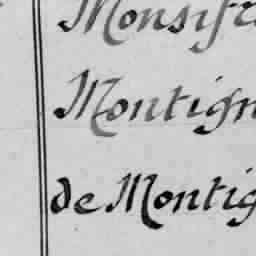 Monsifr
Montign
de Montig